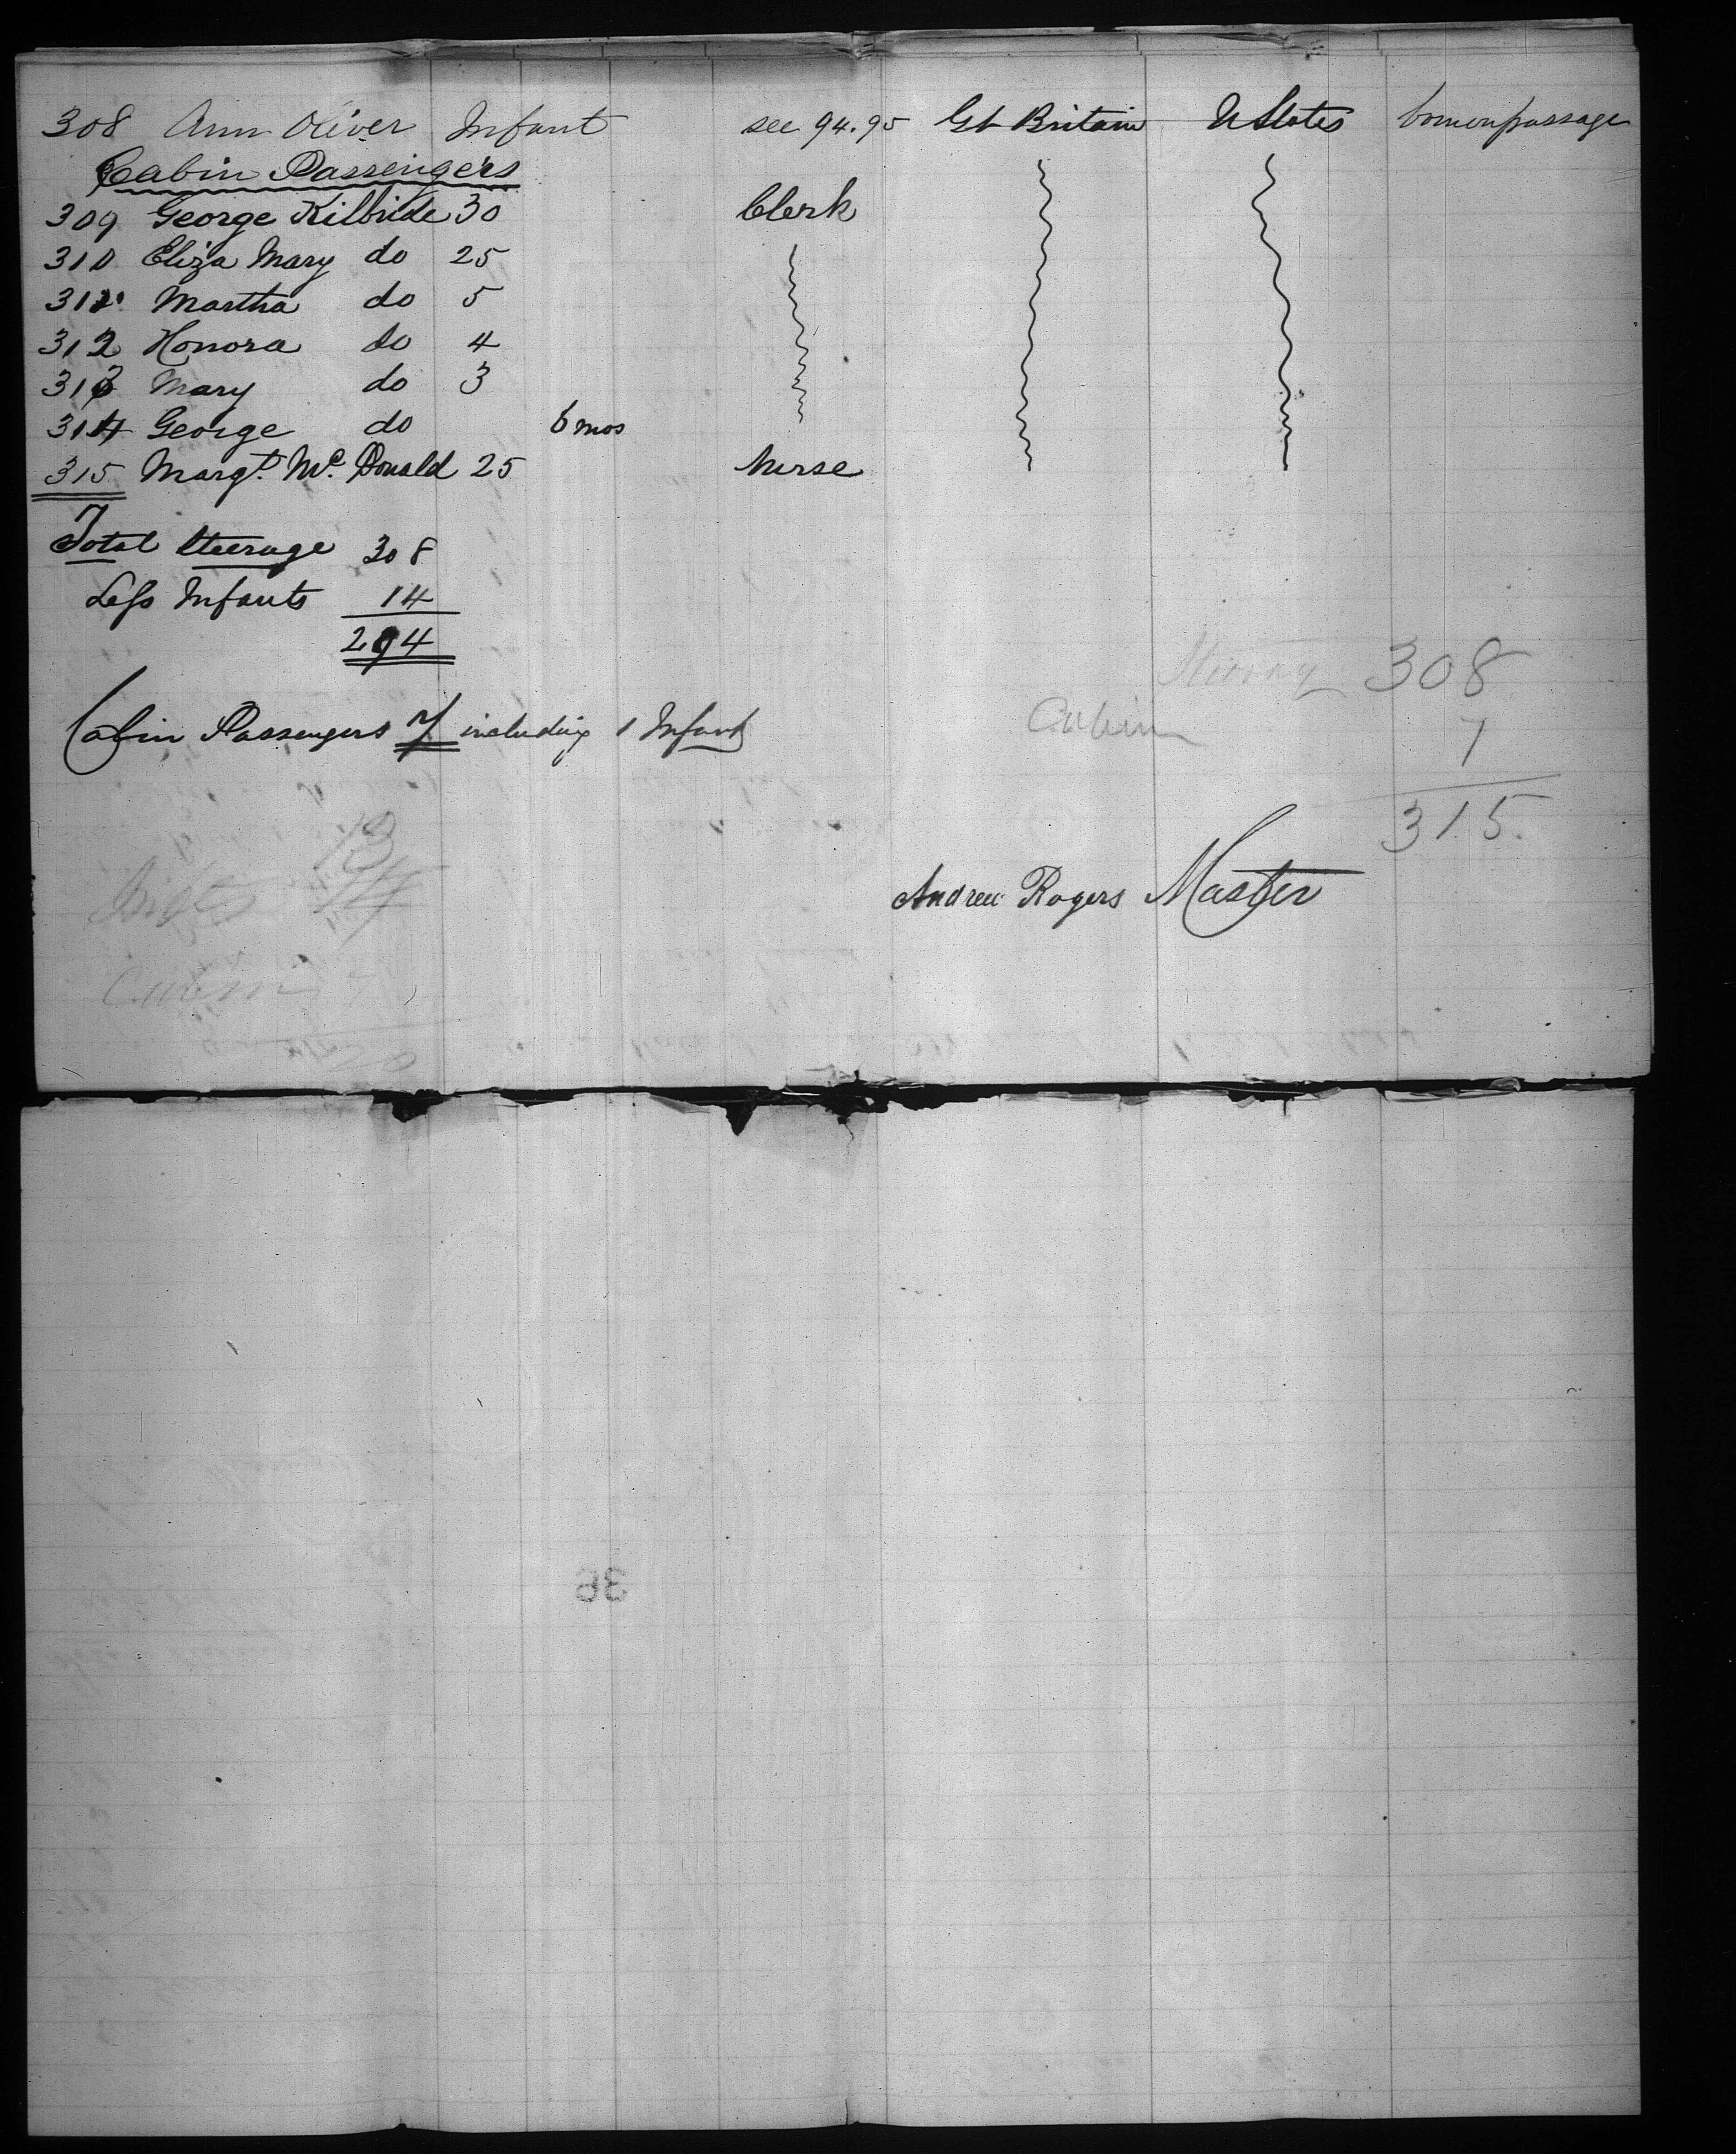 308 Ann Oliver Infant see 94.95 Gt Britain U States born on passage
Cabin Passengers
309 George Kilbride 30 Clerk
310 Eliza Mary do 25
311 Martha do 5
312 Honora do 4
313 Mary do 3
314 George do 6 mos
315 Margt. Mc. Donald 25 Nurse
Total Steerage 308
Less Infants 14
294
Steerag 308
Cabin Passengers 7 including 1 Infant
Cabin 7
315.
Andrew Rogers Master
Cabin
36